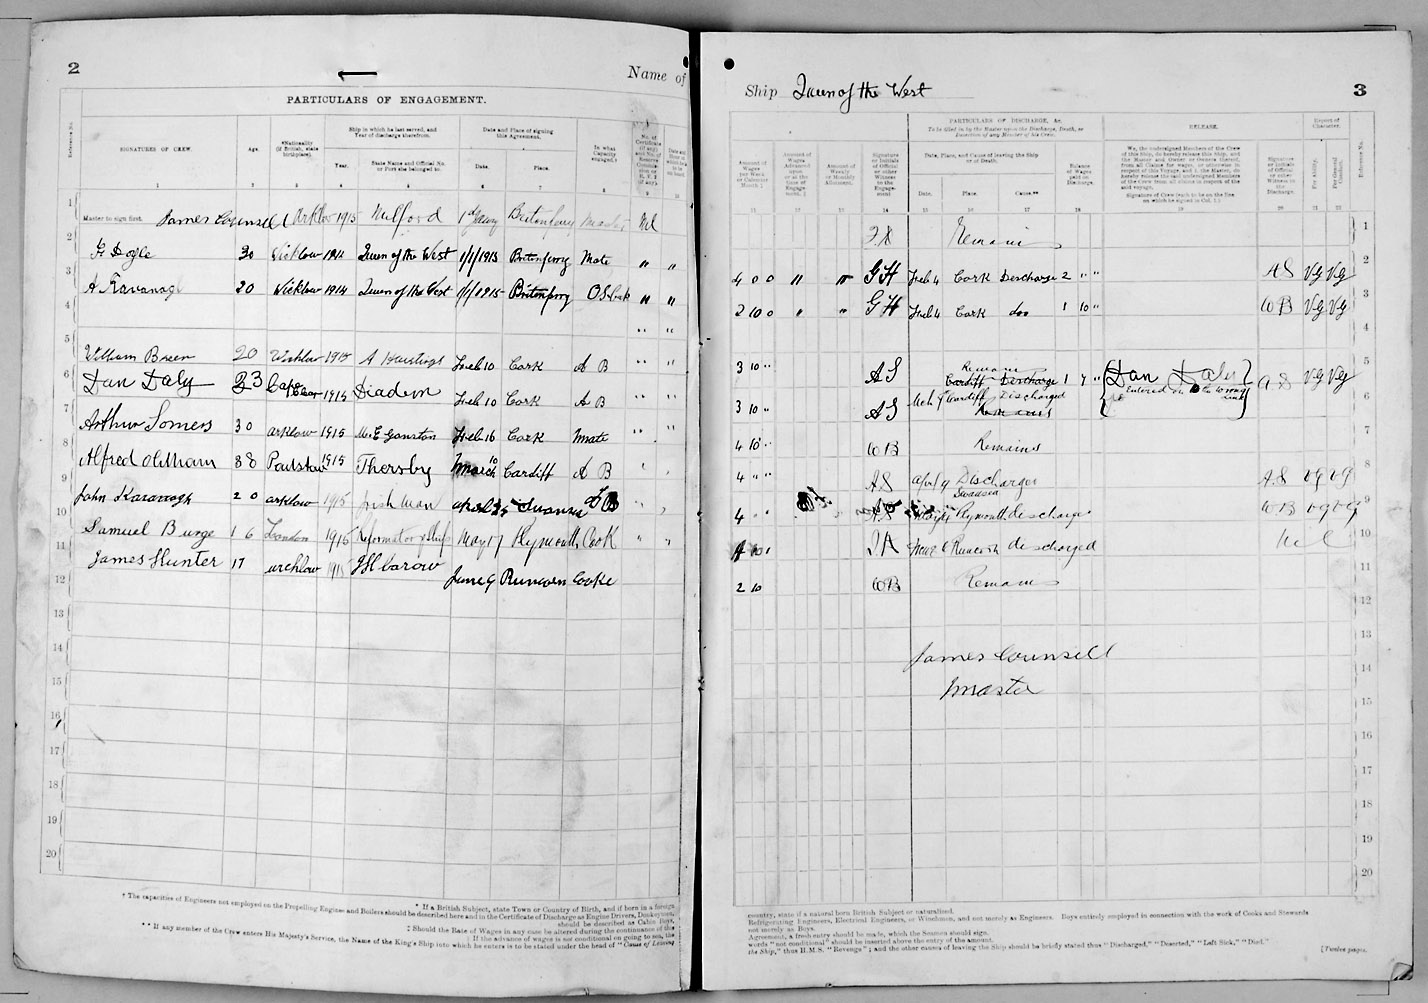 2
Name of
PARTICULARS OF ENGAGEMENT.
Reference No.
SIGNATURES OF CREW.
Age.
*Nationality (if British, state birthplace).
Ship in which he last served, and Year of discharge therefrom.
Year.
State Name and Official No. or Port she belonged to.
Date and Place of signing this Agreement.
Date.
Place.
In what Capacity engaged.†
No. of Certificate (if any)
1 2 3 4 5 6 7 8 9 10
1 Master to sign first. James Counsell Arklow 1915 Milford 1st Jany Britonferry Master Nil
2 G Doyle 30 Wicklow 1914 Queen of the West 1/1/1915 Britonferry Mate " "
3 A Kavanagh 20 Wicklow 1914 Queen of the West 1/1/1915 Britonferry O S Cook " "
4 " "
5 William Breen 20 Wicklow 1915 A Hastings Feb 10 Cork A B " "
6 Dan Daly 23 Cape Clear 1915 Diadem Feb 10 Cork A B " "
7 Arthur Somers 30 arklow 1915 Feb 16 Cork Mate " "
8 Alfred oldham 38 Padstow 1915 Thersby March 10 Cardiff A B
9 John Kavanagh 20 arklow 1915 Irish man april 25 Swansea
10 Samuel Burge 16 London 1915 Reformatory ship May 17 Plymouth Cook " "
11 James Hunter 17 1915 June 9 Runcorn Cooke
12
13
14
15
16
17
18
19
20
† The capacities of Engineers not employed on the Propelling Engines and Boilers should be described here and in the Certificate of Discharge as Engine Drivers, Donkeymen,
* If a British Subject, state Town or Country of Birth, and if born in a foreign
should be described as Cabin Boys,
‡ Should the Rate of Wages in any case be altered during the continuance of this
|| If the advance of wages is not conditional on going to sea, the
** If any member of the Crew enters His Majesty's Service, the Name of the King's Ship into which he enters is to be stated under the head of "Causes of Leaving
Ship Queen of the West
3
PARTICULARS OF DISCHARGE, &c.
To be filled in by the Master upon the Discharge, Death, or Desertion of any Member of his Crew.
RELEASE.
Report of Character.
Amount of Wages per Week or Calendar Month.‡
Amount of Wages Advanced upon or at the time of Engagement.||
Amount of Weekly or Monthly Allotment.
Signature or Initials of Official or other Witness to the Engagement
Date, Place, and Cause of leaving the Ship or of Death.
Date.
Place.
Cause.**
Balance of Wages paid on Discharge.
We, the undersigned Members of the Crew of this Ship, do hereby release this Ship, and the Master and Owner or Owners thereof, from all Claims for wages, or otherwise in respect of this Voyage, and I, the Master, do hereby release the said undersigned Members of the Crew from all claims in respect of the said voyage.
Signature of Crew (each to be on the line on which he signed in Col. 1.)
Signature or Initials of Official or other Witness to the Discharge.
For Ability.
For General Conduct.
Reference No.
11 12 13 14 15 16 17 18 19 20 21 22
Remains 1
4 0 0 " " G H Feb 4 Cork Discharge 2 " " A S VG VG 2
2 10 0 " " G H Feb 4 Cork doo 1 10 " W B VG VG 3
4
Remain
3 10 " A S Cardiff Discharge 1 7 " Dan Daly A S VG VG 5
Entered on the wrong Line 6
3 10 " A S Mch 9 Cardiff Discharged
Remains
4 10 " W B Remains 7
4 " " A S april 9 Discharge A S VG VG 8
Swansea
4 " " Plymouth discharge W B VG VG 9
4 10 Runcorn discharged 10
2 10 W B Remains 11
12
James Counsell 13
Master 14
15
16
17
18
19
20
country, state if a natural born British Subject or naturalised.
Refrigerating Engineers, Electrical Engineers, or Winchmen, and not merely as Engineers. Boys entirely employed in connection with the work of Cooks and Stewards
not merely as Boys.
Agreement, a fresh entry should be made, which the Seamen should sign.
words "not conditional" should be inserted above the entry of the amount.
the Ship," thus H.M.S. "Revenge"; and the other causes of leaving the Ship should be briefly stated thus "Discharged," "Deserted," "Left Sick," "Died."
[Twelve pages.